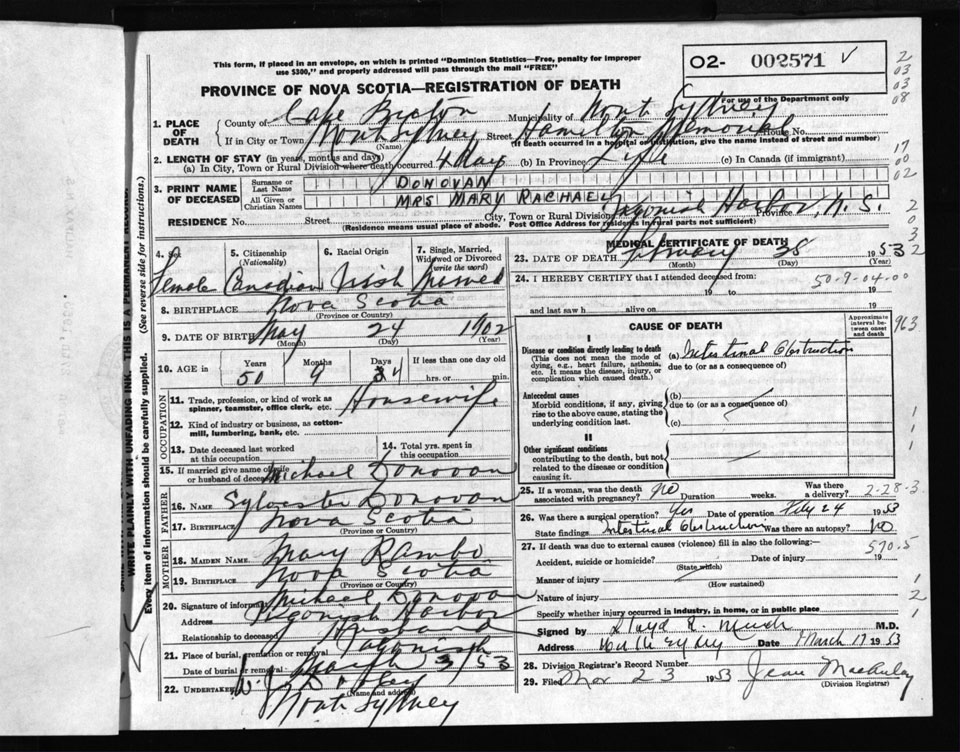 This form, if placed in an envelope, on which is printed "Dominion Statistics—Free, penalty for improper
use $300," and properly addressed will pass through the mail "FREE"
O2- 002571 ✓
PROVINCE OF NOVA SCOTIA—REGISTRATION OF DEATH
For use of the Department only
1. PLACE OF DEATH
County of Cape Breton Municipality of North Sydney
If in City or Town North Sydney (Name) Street Hamilton Memorial House No.
(If death occurred in a hospital or institution, give the name instead of street and number)
2. LENGTH OF STAY (in years, months and days)
(a) In City, Town or Rural Division where death occurred 4 days (b) In Province Life (c) In Canada (if immigrant)
3. PRINT NAME OF DECEASED
Surname or Last Name DONOVAN
All Given or Christian Names MRS MARY RACHAEL
RESIDENCE No. Street City, Town or Rural Division Ingonish Harbor, Province N. S.
(Residence means usual place of abode. Post Office Address for residents in rural parts not sufficient)
4. Sex Female
5. Citizenship (Nationality) Canadian
6. Racial Origin Irish
7. Single, Married, Widowed or Divorced (write the word) Married
8. BIRTHPLACE Nova Scotia
(Province or Country)
9. DATE OF BIRTH May 24 1902
(Month) (Day) (Year)
10. AGE in Years 50 Months 9 Days 4 If less than one day old hrs. or min.
OCCUPATION
11. Trade, profession, or kind of work as spinner, teamster, office clerk, etc. Housewife
12. Kind of industry or business, as cotton-mill, lumbering, bank, etc.
13. Date deceased last worked at this occupation
14. Total yrs. spent in this occupation
15. If married give name of wife or husband of deceased Michael Donovan
FATHER
16. NAME Sylvester Donovan
17. BIRTHPLACE Nova Scotia
MOTHER
18. MAIDEN NAME Mary Rambo
19. BIRTHPLACE Nova Scotia
(Province or Country)
20. Signature of informant Michael Donovan
Address Ingonish Harbor
Relationship to deceased Husband
21. Place of burial, cremation or removal Ingonish
Date of burial or removal March 3/53
22. UNDERTAKER W. J.
(Name and address)
North Sydney
MEDICAL CERTIFICATE OF DEATH
23. DATE OF DEATH February 28 1953
(Month) (Day) (Year)
24. I HEREBY CERTIFY that I attended deceased from:
50-9-04-00
19 to 19
and last saw h alive on 19
CAUSE OF DEATH
Approximate interval between onset and death
I
Disease or condition directly leading to death
(This does not mean the mode of dying, e.g., heart failure, asthenia, etc. It means the disease, injury, or complication which caused death.)
(a) Intestinal Obstruction
due to (or as a consequence of)
Antecedent causes
Morbid conditions, if any, giving rise to the above cause, stating the underlying condition last.
(b)
due to (or as a consequence of)
(c)
II
Other significant conditions
contributing to the death, but not related to the disease or condition causing it.
25. If a woman, was the death associated with pregnancy? No Duration weeks. Was there a delivery? 2-28-3
26. Was there a surgical operation? Yes Date of operation Feby 24 1953
State findings Intestinal Obstruction Was there an autopsy? No
27. If death was due to external causes (violence) fill in also the following:— 570.5
Accident, suicide or homicide? Date of injury 19
(State which)
Manner of injury
(How sustained)
Nature of injury
Specify whether injury occurred in industry, in home, or in public place
Signed by M.D.
Address North Sydney Date March 17 1953
28. Division Registrar's Record Number
29. Filed Mar 23 1953 Jean
(Division Registrar)
WRITE PLAINLY WITH UNFADING INK. THIS IS A PERMANENT RECORD.
Every item of information should be carefully supplied. (See reverse side for instructions.)
2
03
03
08
17
00
02
2
0
3
2
963
1
1
1
1
2
1